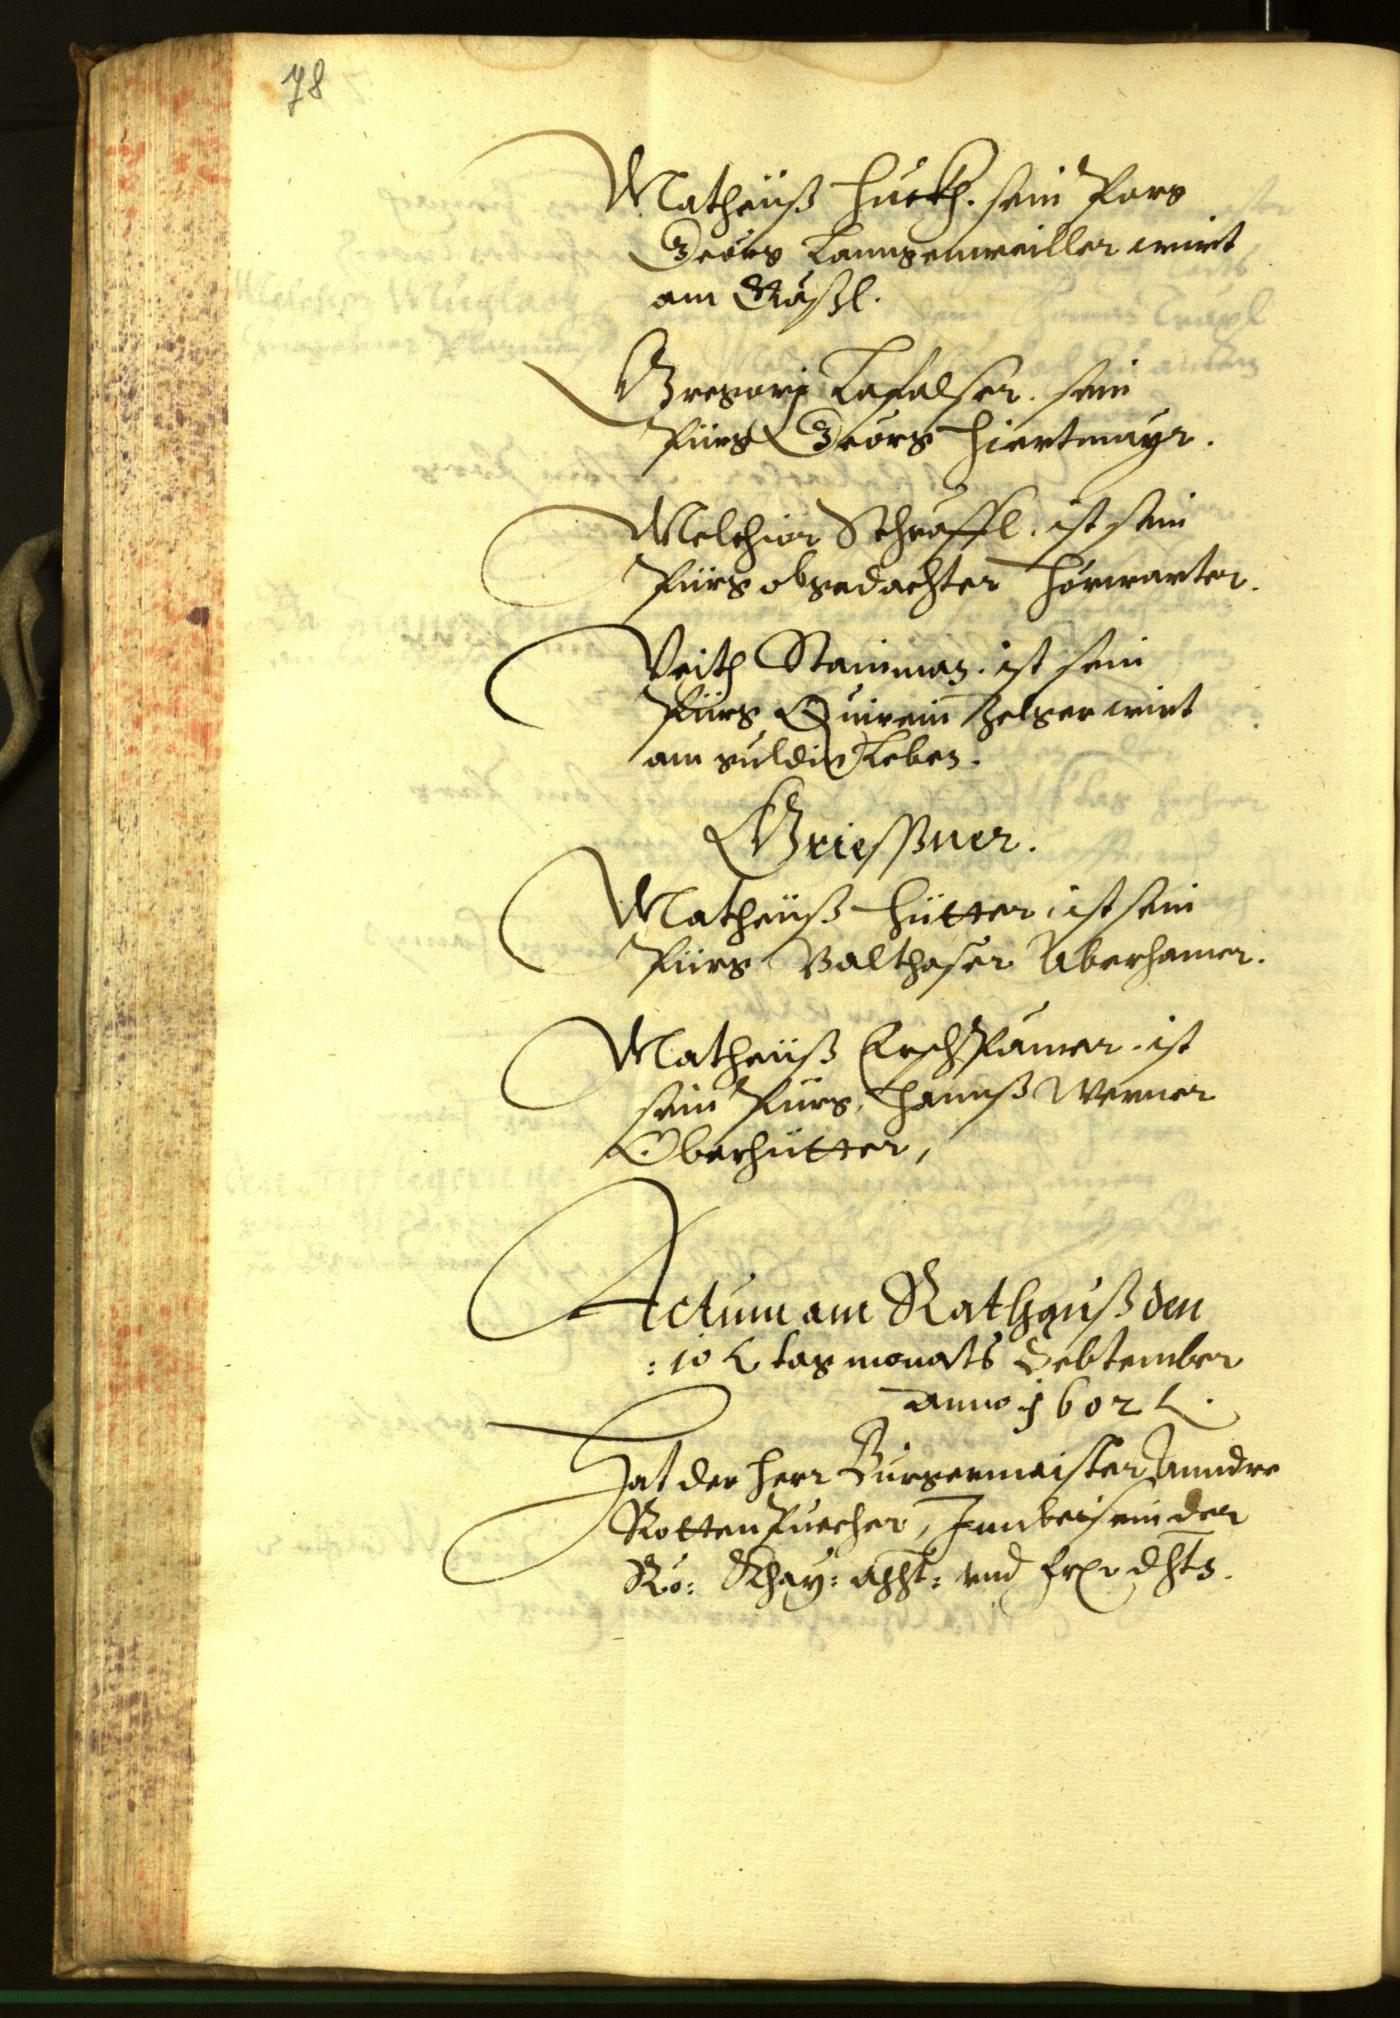 78
Matheüß Huckh. sein Porg
Georg Lanngenweiller wirt
am Rößl.
Gregorj Lafalser. sein
Pürg Georg Hiertmayr.
Melchior Schraffl. ist sein
Pürg obgedachter Hörwarter.
Veith Stainman. ist sein
Pürg Quirein Zelger wirt
am guldin Reben.
Grießner.
Matheüß Hütter ist sein
Pürg Balthaser Aberhamer.
Matheüß Erschpamer. ist
sein Pürg, Hannß Werner
Oberhütter,
Actum am Rathauß den
: 10 t tag monats Sebtember
anno 1602 t.
Hat der Herr Burgermaister Anndre
Rottenpuecher, Jnn beisein der
Rö: Khay: Mht: vnd Frl: dht: